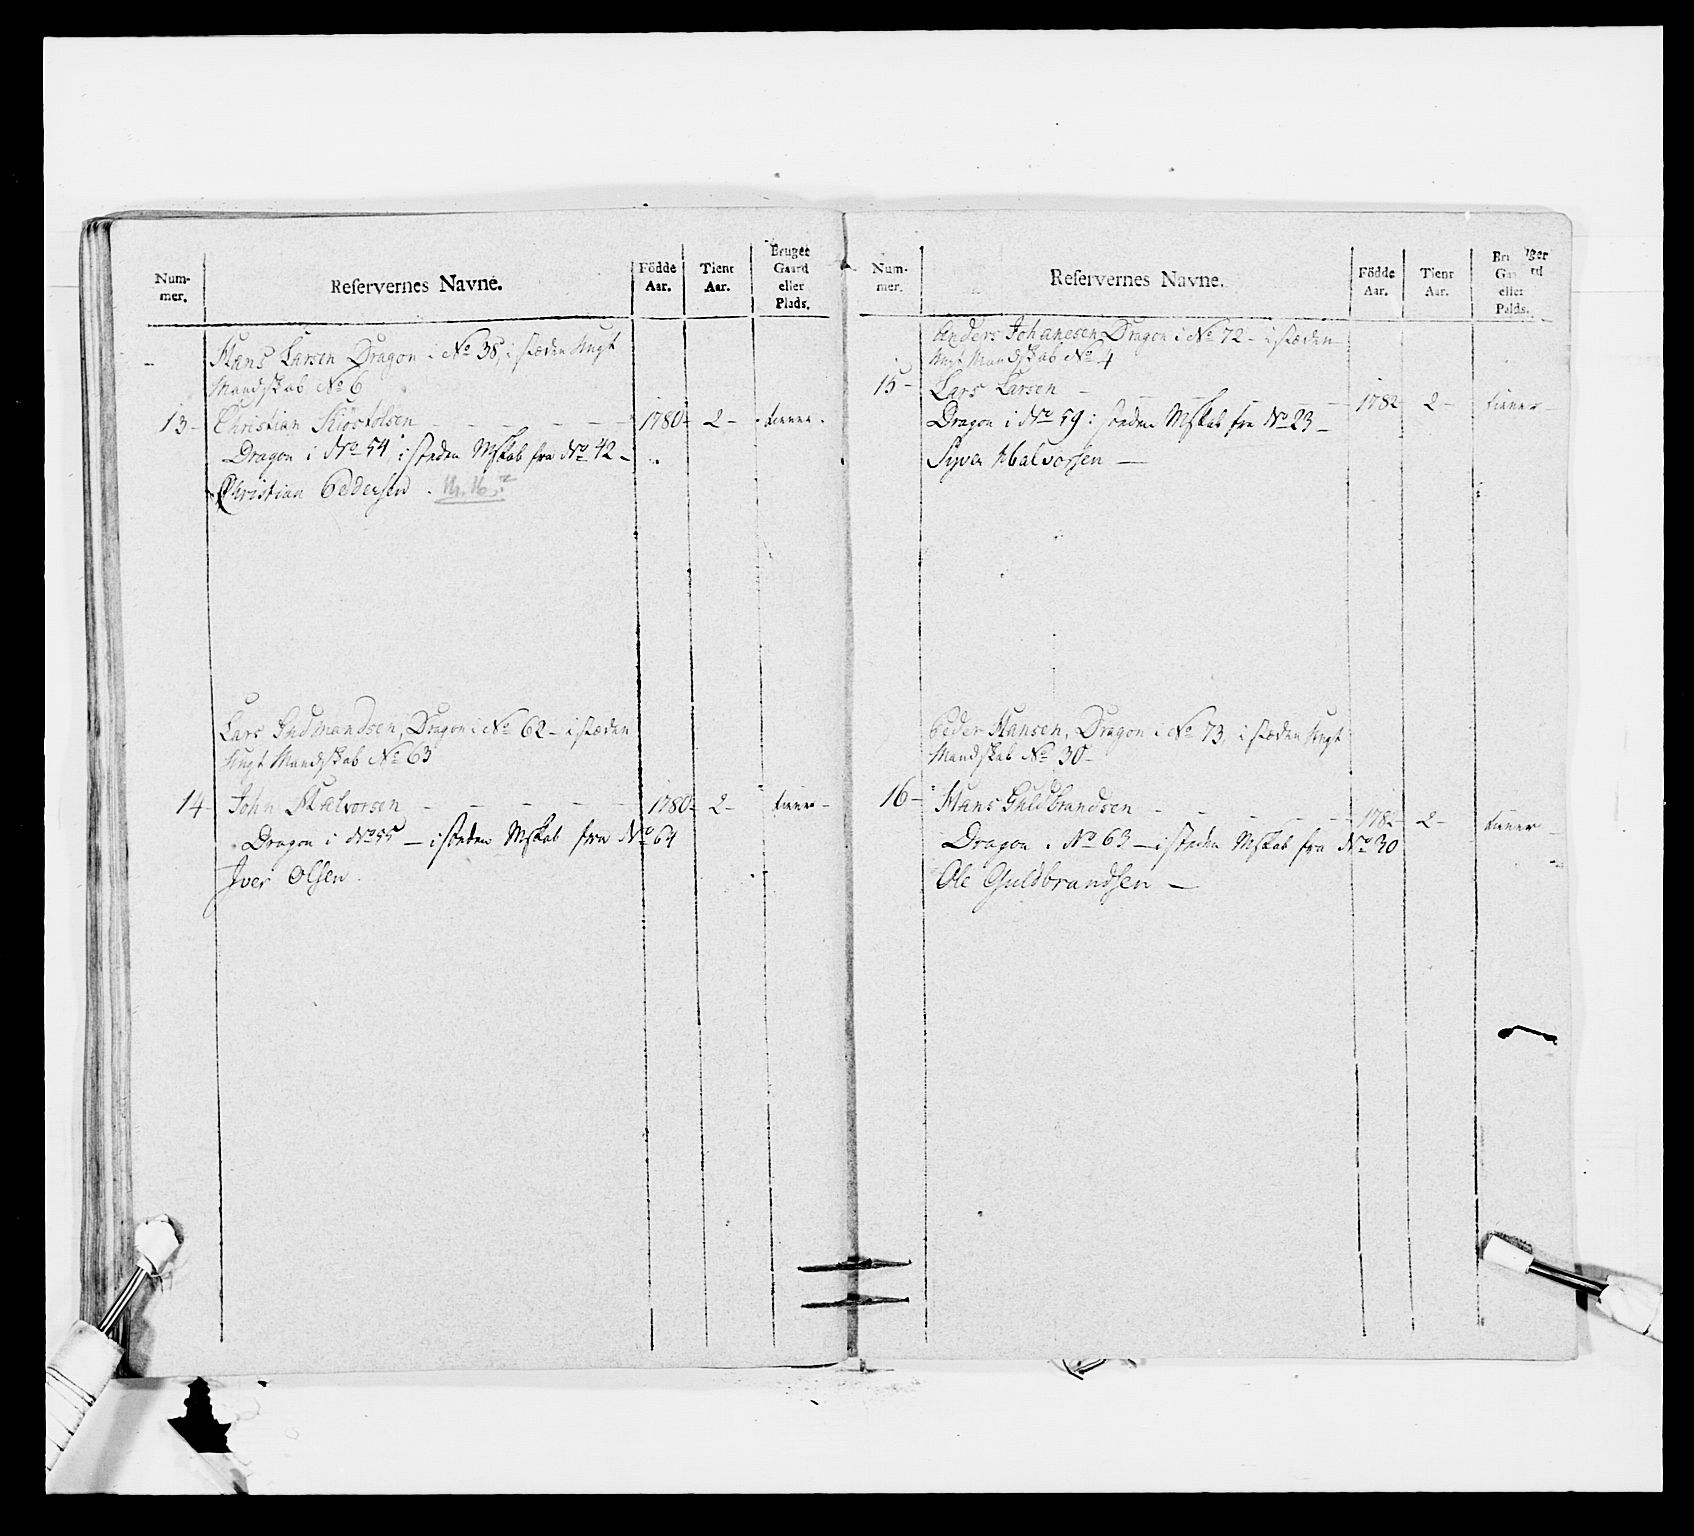 Num-
mer.
Reservernes Navne.
Födde
Aar.
Tient
Aar.
Bruget
Gaard
eller
Plads.
Hans Larsen Dragon i No 38, i stæden Ungt
Mandskab No 6
13 - Christian Kiöstolsen - - - - - 1780 - 2 - tiener.
Dragon i No 54, i steden Mskab fra No 42 -
Christian Pedersen.
Lars Gudmandsen, Dragon i No 62 - i stæden
Ungt Mandskab No 63
14 - John Halvorsen - - - - - 1780 - 2 - tiener -
Dragon i No 55 - i steden Mskab fra No 64
Iver Olsen.
Num-
mer.
Reservernes Navne.
Födde
Aar.
Tient
Aar.
eller
Palds.
Anders Johanesen Dragon i No 72 - i stæden
Ungt Mandskab No 4
15 - Lars Larsen - - - - - 1782 2 - tiener -
Dragon i No 59 i steden Mskab fra No 23 -
Syver Halvorsen -
Peder Hansen, Dragon i No 73, i stæden Ungt
Mandskab No 30 -
16 - Hans Guldbrandsen - - - - - 1782 - 2 - tiener -
Dragon i No 63 - i steden Mskab fra No 30
Ole Guldbrandsen -